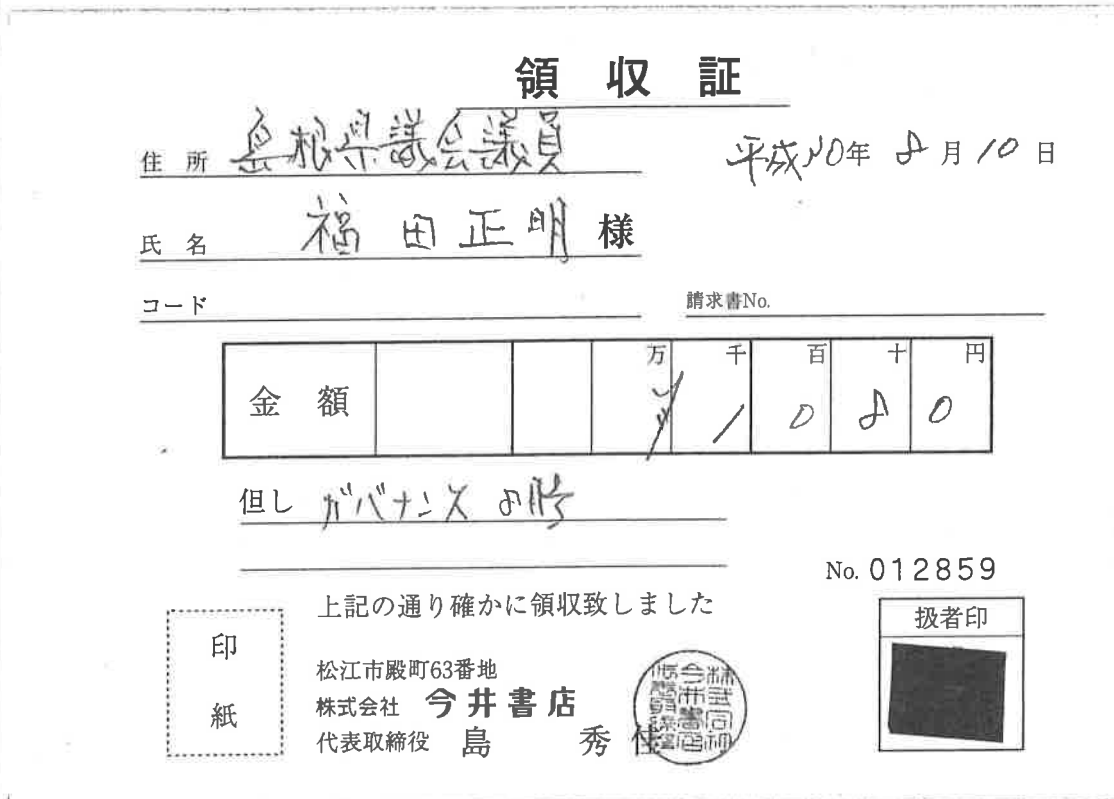 領収証
住所 島根県議会議員
平成20年8月10日
氏名 福田正明 様
コード
請求書No.
金額 万 千 百 十 円
¥ 1 0 8 0
但し ガバナンス 8月号
No. 012859
上記の通り確かに領収致しました
扱者印
印紙
松江市殿町63番地
株式会社 今井書店
代表取締役 島 秀佳